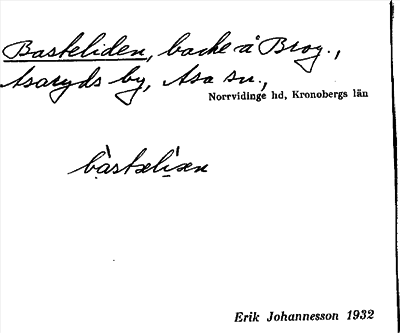 Basteliden, backe å Brog.,
Asaryds by, Asa sn.,
Norrvidinge hd, Kronobergs län
Erik Johannesson 1932